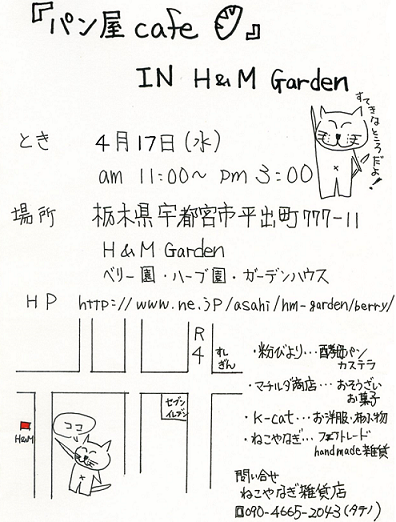 『パン屋 cafe 』
IN H&M Garden
すてきなところだよ！
とき 4月17日(水)
am 11:00～ pm 3:00
場所 栃木県宇都宮市平出町777-11
H&M Garden
ベリー園・ハーブ園・ガーデンハウス
HP http://www.ne.jp/asahi/hm-garden/berry/
R4
すしぎん
セブンイレブン
H&M
ココ
・粉びより…酵母パン
カステラ
・マチルダ商店…おそうざい
お菓子
・K-cat…お洋服・布小物
・ねこやなぎ…フェアトレード
handmade雑貨
問い合せ
ねこやなぎ雑貨店
090-4665-2043(タテノ)